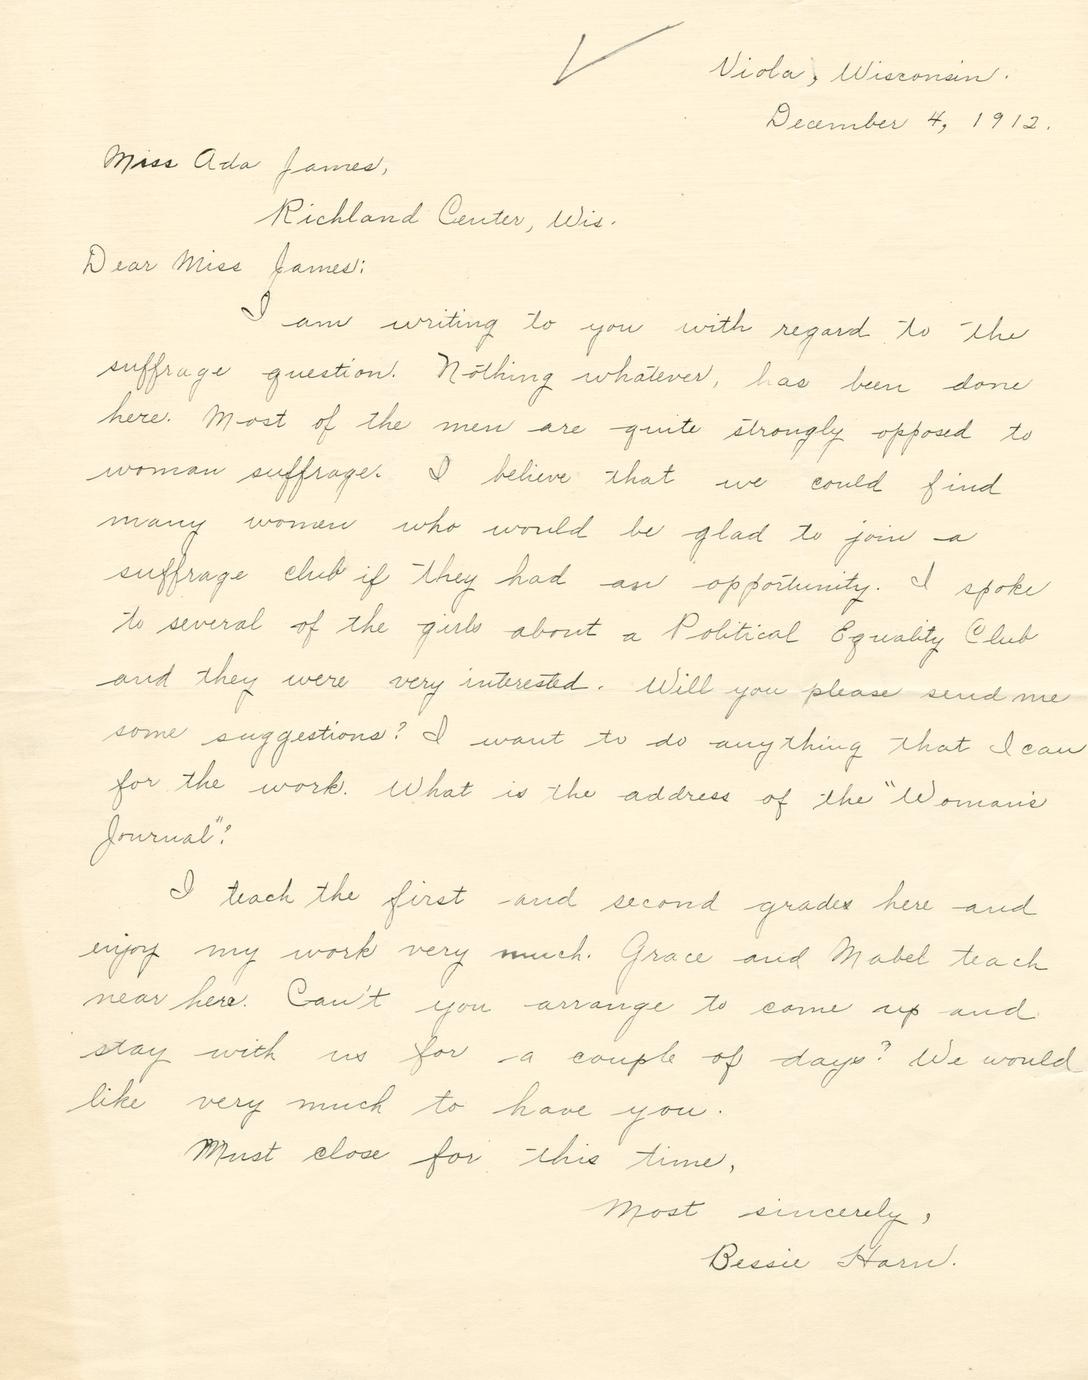 Viola, Wisconsin.
December 4, 1912.
Miss Ada James,
Richland Center, Wis.
Dear Miss James:
I am writing to you with regard to the
suffrage question. Nothing whatever, has been done
here. Most of the men are quite strongly opposed to
woman suffrage. I believe that we could find
many women who would be glad to join a
suffrage club if they had an opportunity. I spoke
to several of the girls about a Political Equality Club
and they were very interested. Will you please send me
some suggestions? I want to do anything that I can
for the work. What is the address of the "Woman's
Journal"?
I teach the first and second grades here and
enjoy my work very much. Grace and Mabel teach
near here. Can't you arrange to come up and
stay with us for a couple of days? We would
like very much to have you.
Must close for this time,
Most sincerely,
Bessie Harn.